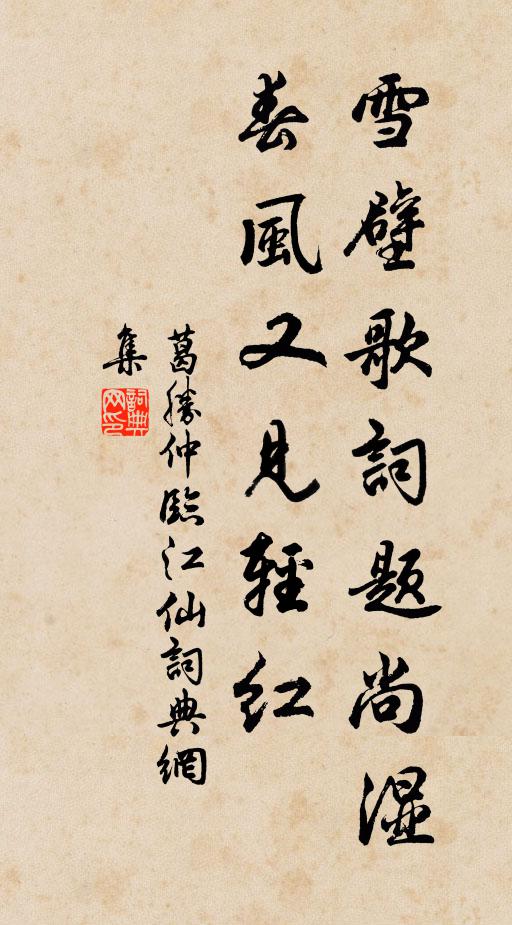 雪壁歌詞題尚濕
春風又見輕紅
葛勝仲臨江仙詞典網
集
詞典网印